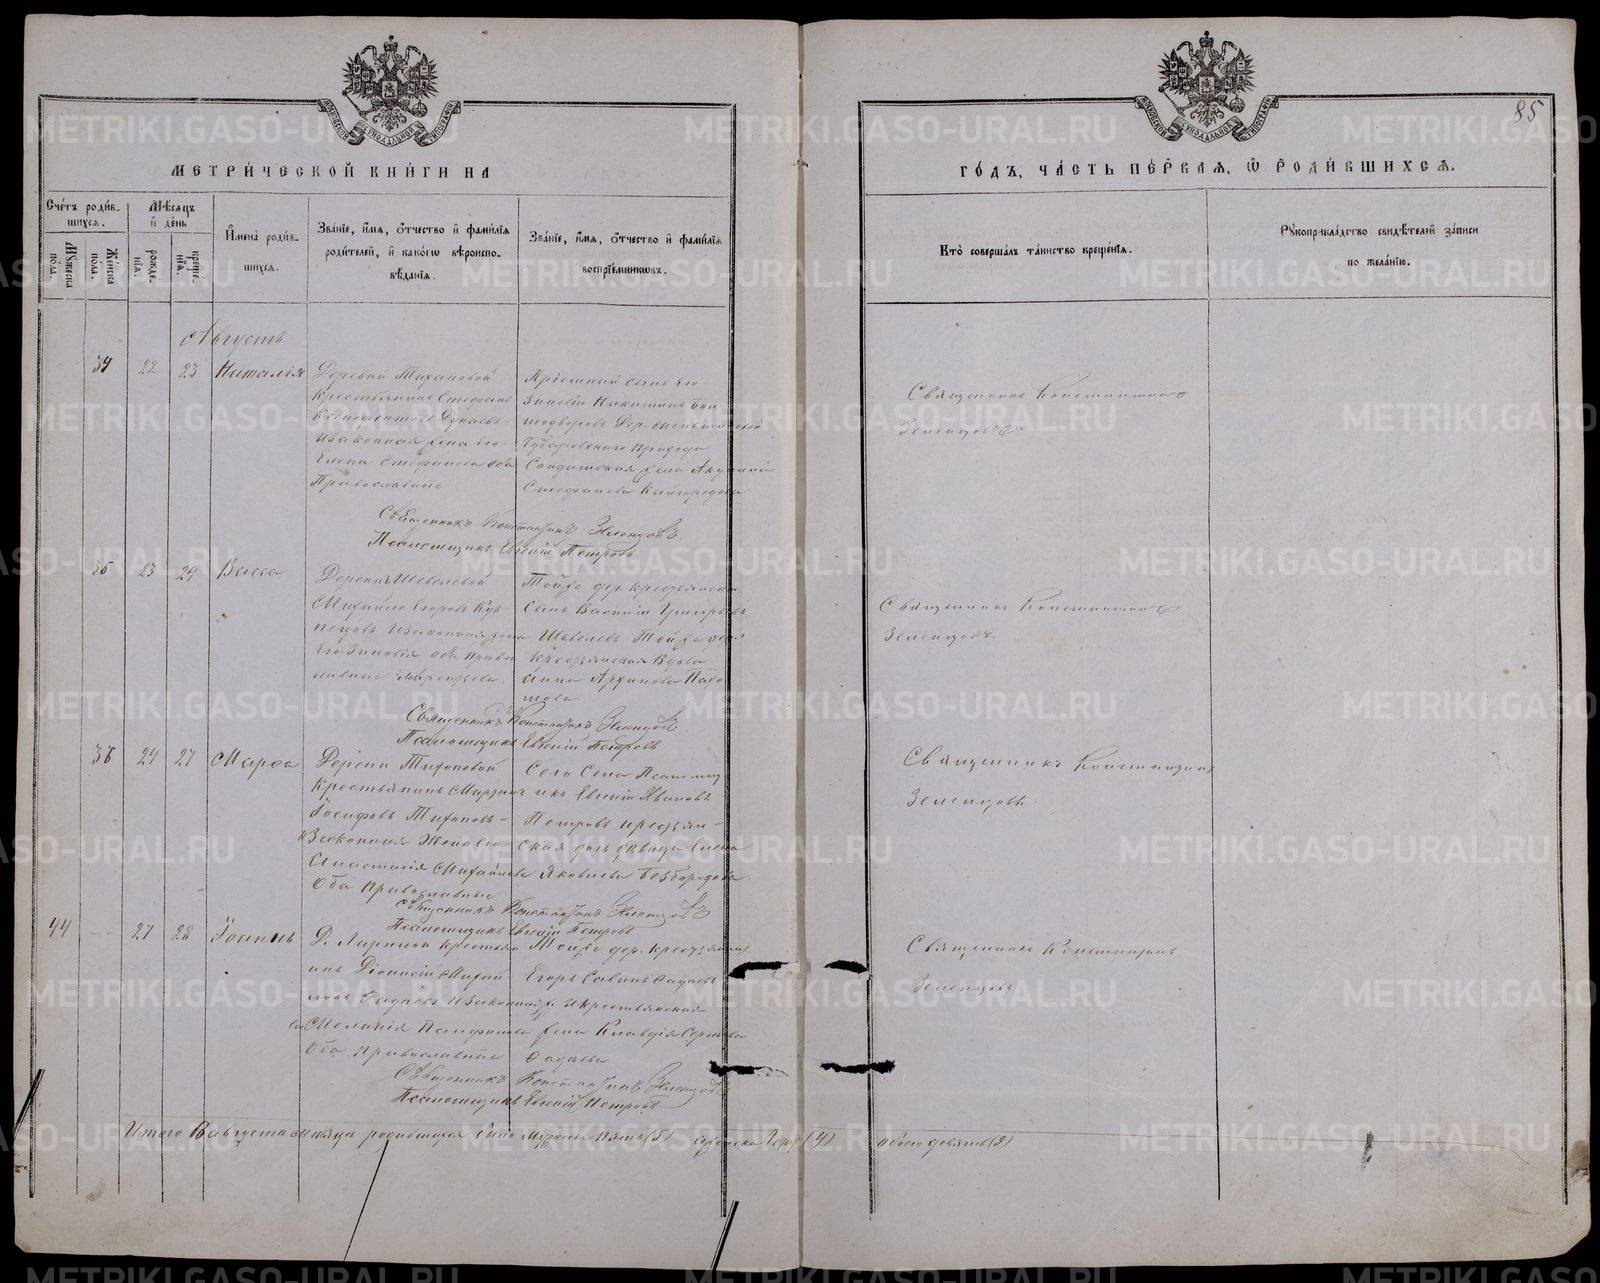 85
МЕТРИ́ЧЕСКОЙ КНИ́ГИ НА
ГО́ДЪ, ЧА́СТЬ ПЕ́РВАЯ, Ѡ РОДИ́ВШИХСЯ.
Сче́тъ роди́в-
шихся.
Мѣсяцъ
и де́нь
Мꙋжеска
по́ла.
Же́нска
по́ла.
рожде-
нїя.
креще́-
нїя.
И҆мена̀ роди́в-
шихся.
Зва́нїе, и҆́мя, ѻ҆́тчество и҆ фами́лїя
роди́телей, и҆ како́гѡ вѣроиспо-
вѣ́данїя.
Зва́нїе, и҆́мя, ѻ҆́тчество и҆ фами́лїя
воспрїе́мникѡвъ.
Кто̀ соверша́лъ та́инство креще́нїя.
Рꙋкоприкла́дство свидѣ́телей за́писи
по жела́нїю.
Августъ
34 22 23 Наталія
Деревни Тихановой
Крестьянинъ Стефанъ
Изаконная жена его
Елена Стефанова оба
Православные
Зиновій Никитинъ
Чубаровскаго Прихода
Солдатская жена
Стефанова Кайгородова
Священникъ Константинъ
Зеленцовъ
Священникъ Константинъ Зеленцовъ
Псаломщикъ Евгеній Петровъ
35 23 24 Васса
Деревни Шевелевой
Михайло Егоровъ Куз-
нецовъ Изаконная жена
Его Зиновія оба Право
славные
Тойже дер. крестьянскій
Сынъ Василій Григорьевъ
Шевелевъ Тойже дер.
Крестьянская Вдова
Анна Архипова Пахо
мова
Священникъ Константинъ
Зеленцовъ.
Священникъ Константинъ Зеленцовъ
Псаломщикъ Евгеній Петровъ
36 24 27 Марѳа
Деревни Тихановой
Крестьянинъ
Іосифовъ Тихановъ
Изаконная Жена его
Анастасія Михайлова
Оба православные
Сего Села Псаломщ
икъ Евгеній Ивановъ
Петровъ Крестьян-
ская дочь девица Елена
Яковлева Безбородова
Священникъ Константинъ
Зеленцовъ
Священникъ Константинъ Зеленцовъ
Псаломщикъ Евгеній Петровъ
44 27 28 Іоаннъ
Д. Лариной Крестьян
инъ Діонисій Михай
ловъ Фадѣевъ Изаконная
Меланія
Оба Православные
Тойже дер. Крестьянинъ
Егоръ Савинъ Фадѣевъ
И крестьянская
жена Клавдія Сергеева
Фадѣева
Священникъ Константинъ
Зеленцовъ
Священникъ Константинъ Зеленцовъ
Псаломщикъ Евгеній Петровъ
Итого В августѣ месяце родившихся было Мужеска Пять (5) женска (4) обоего девять (9)
METRIKI.GASO-URAL.RU